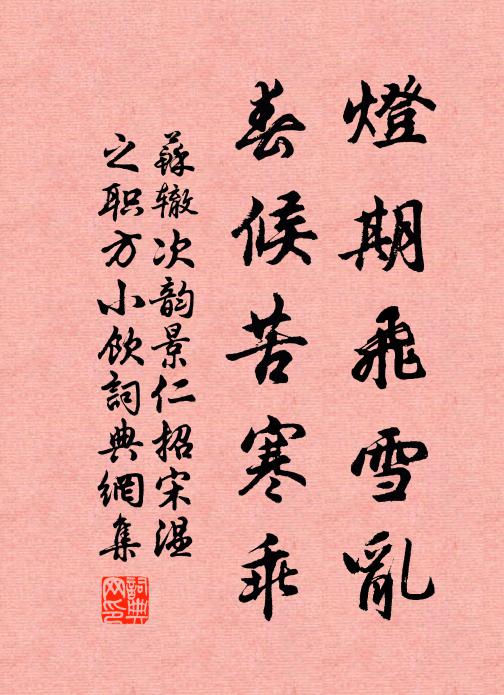 燈期飛雪亂
春候苦寒乖
蘇辙次韵景仁招宋温
之职方小飲詞典網集
詞典网印